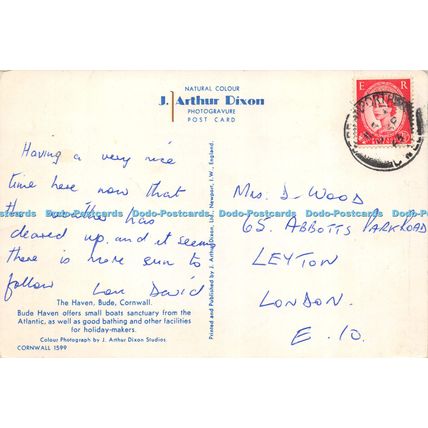 NATURAL COLOUR
J. Arthur Dixon
PHOTOGRAVURE
POST CARD
E R
Having a very nice
time here now that
the weather has
cleared up, and it seems
there is more sun to
follow Love David
The Haven, Bude, Cornwall.
Bude Haven offers small boats sanctuary from the
Atlantic, as well as good bathing and other facilities
for holiday-makers.
Colour Photograph by J. Arthur Dixon Studios.
CORNWALL 1599
Printed and Published by J. Arthur Dixon, Ltd., Newport, I.W., England.
Mrs. D. WOOD
65, ABBOTTS PARK ROAD
LEYTON
LONDON.
E. 10.
Dodo-Postcards Dodo-Postcards Dodo-Postcards Dodo-Postcards